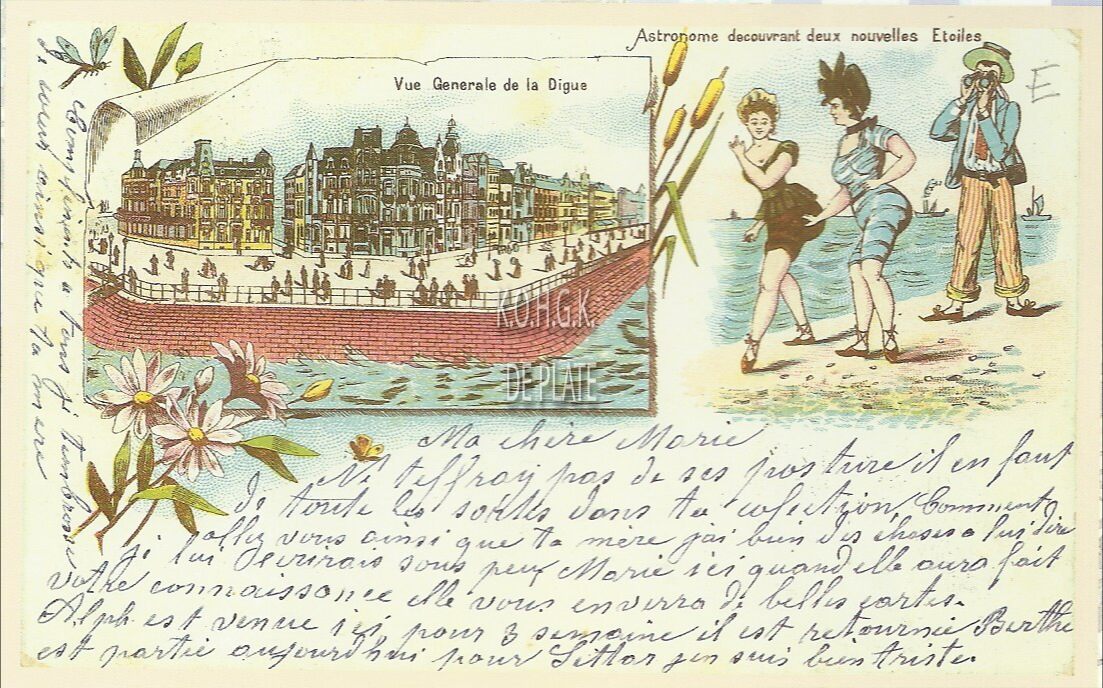 Astronome decouvrant deux nouvelles Etoiles
Vue Generale de la Digue
E
K.O.H.G.K.
DE PLATE
Ma chère Marie
Ne t'effray pas de ses posture il en faut
de toute les sortes dans ta colection, Comment
allez vous ainsi que ta mère j'ai bien des choses a lui dire
ji lui écrirais sous peux Marie ici quand elle aura fait
votre connaissance elle vous enverra de belles cartes.
Alph est venue ici, pour 3 semaine il est retournée Berthe
est partie aujourd'hui pour j'en suis bien triste.
a tous ji tembrasse
de coeur ainsi que ta mere